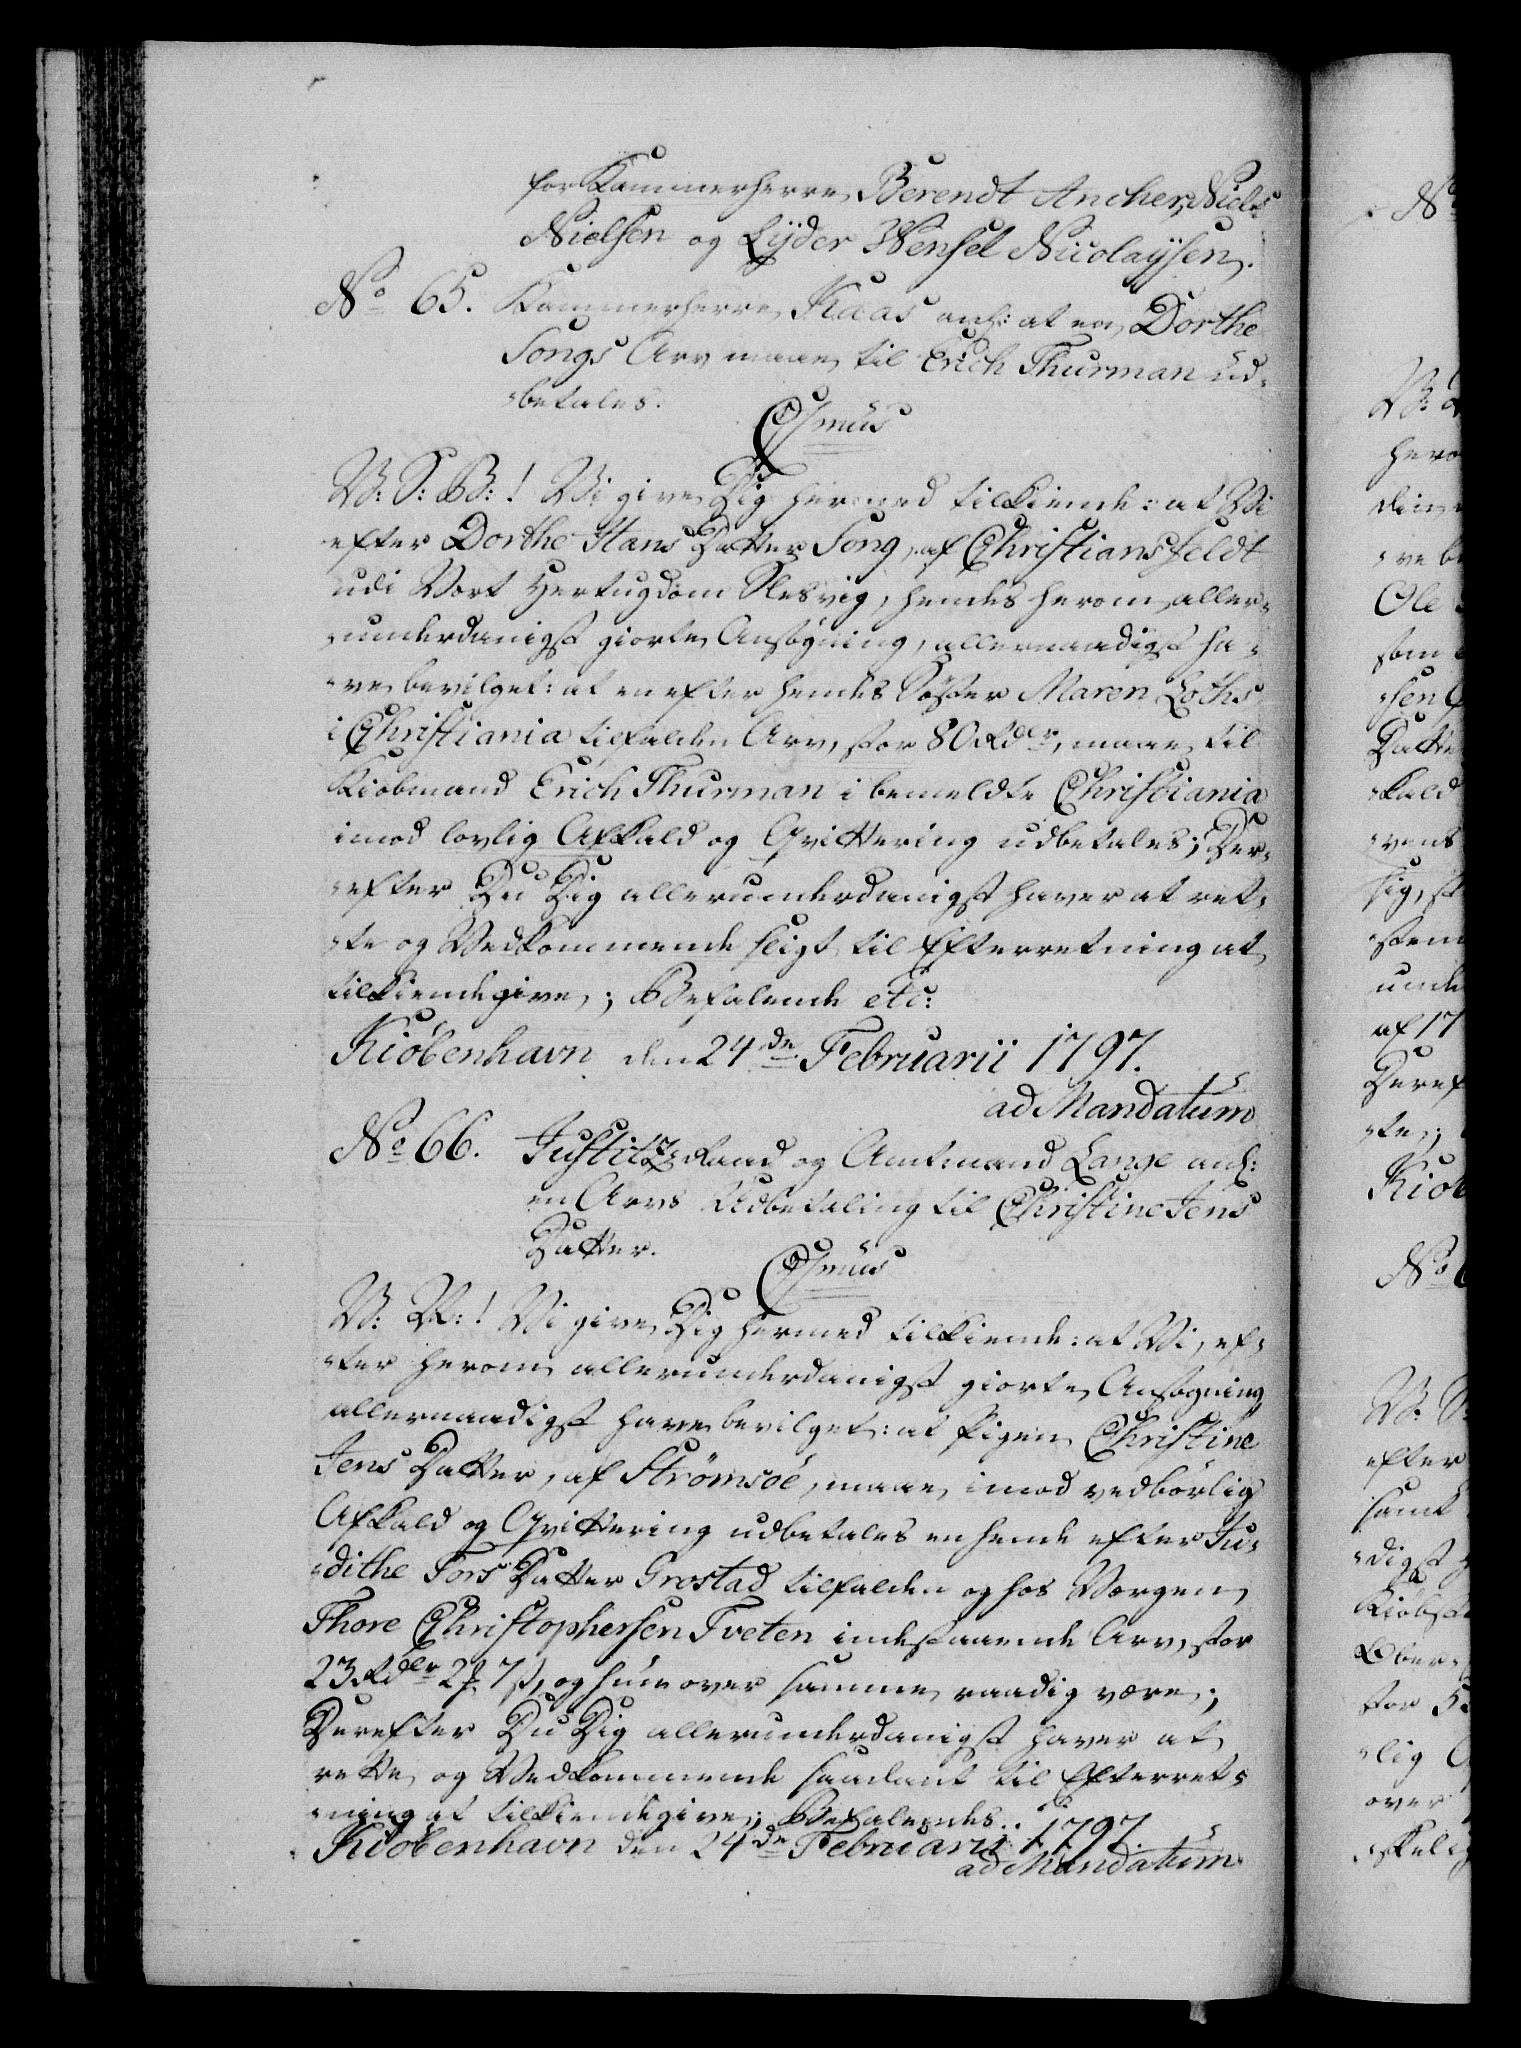 for Kammerherre Berendt Ancher, Niels
Nielsen og Lyder Wensel Nicolaysen.
No 65. Kammerherre Kaas anl: at en Dorthe
Songs Arv maae til Erich Thurman ud-
-betales.
CSmus
V: S: B:! Vi give Dig hermed tilkiende: at Vi
efter Dorthe Hans Datter Song, af Christiansfeldt
udi Vort Hertugdom Slesvig, hendes herom aller-
-underdanigst giorte Ansögning, allernaadigst ha-
-ve bevilget: at en efter hendes Söster Maren Loths
i Christiania tilfalden Arv, stor 80 Rdlr, maae til
Kiöbmand Erich Thurman i bemeldte Christiania
imod lovlig Afkald og Qvittering udbetales; Der-
-efter Du Dig allerunderdanigst haver at ret-
-te og Vedkommende sligt til Efterretning at
tilkiendegive; Befalende etc:
Kiöbenhavn den 24de Februarii 1797.
ad Mandatum
No 66. Justitz Raad og Amtmand Lange anl:
en Arvs Udbetaling til Christine Jens
Datter.
CSmus
V: V:! Vi give Dig hermed tilkiende: at Vi, ef-
-ter herom allerunderdanigst giorte Ansøgning
allernaadigst have bevilget: at Pigen Christine
Jens Datter, af Strömsöe, maae, imod vedbörlig
Afkald og Qvittering udbetales en hende efter Ju-
-dithe Tors Datter Grostad tilfalden og hos Vorgen
Thore Christophersen Tveten indestaaende Arv, stor
23 Rdlr 2 7 s, og hun over samme raadig være;
Derefter Du Dig allerunderdanigst haver at
rette og Vedkommende saadant til Efterret-
-ning at tilkiendegive; Befalendes.
Kiöbenhavn den 24de Februarii 1797.
ad Mandatum